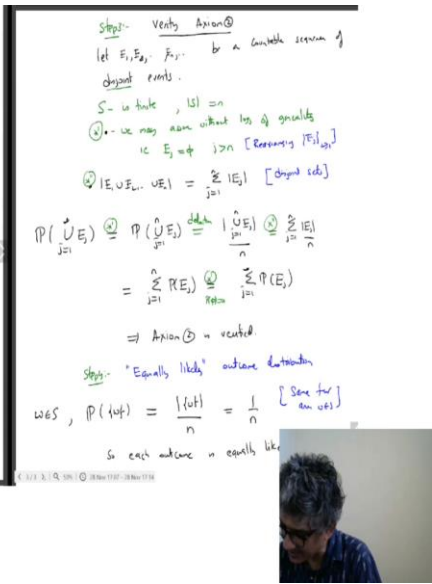 Step3:- Verify Axiom②
let E₁, E₂, ... Eₙ... be a countable sequence of
disjoint events.
S - is finite, |S| = n
- we may assume without loss of generality
ie Eⱼ = ϕ j>n [Rearranging {Eⱼ}ⱼ≥₁]
|E₁ ∪ E₂ ... ∪ Eₙ| = Σⱼ₌₁ⁿ |Eⱼ| [disjoint sets]
ℙ(∪ⱼ₌₁^∞ Eⱼ) = ℙ(∪ⱼ₌₁ⁿ Eⱼ) = |∪ⱼ₌₁ⁿ Eⱼ| / n = Σⱼ₌₁ⁿ |Eⱼ| / n
= Σⱼ₌₁ⁿ ℙ(Eⱼ) = Σⱼ₌₁^∞ ℙ(Eⱼ)
⇒ Axiom② is verified.
Step4:- "Equally likely" outcome distribution
w∈S, ℙ({w}) = |{w}| / n = 1/n [Same for all w∈S]
So each outcome is equally like